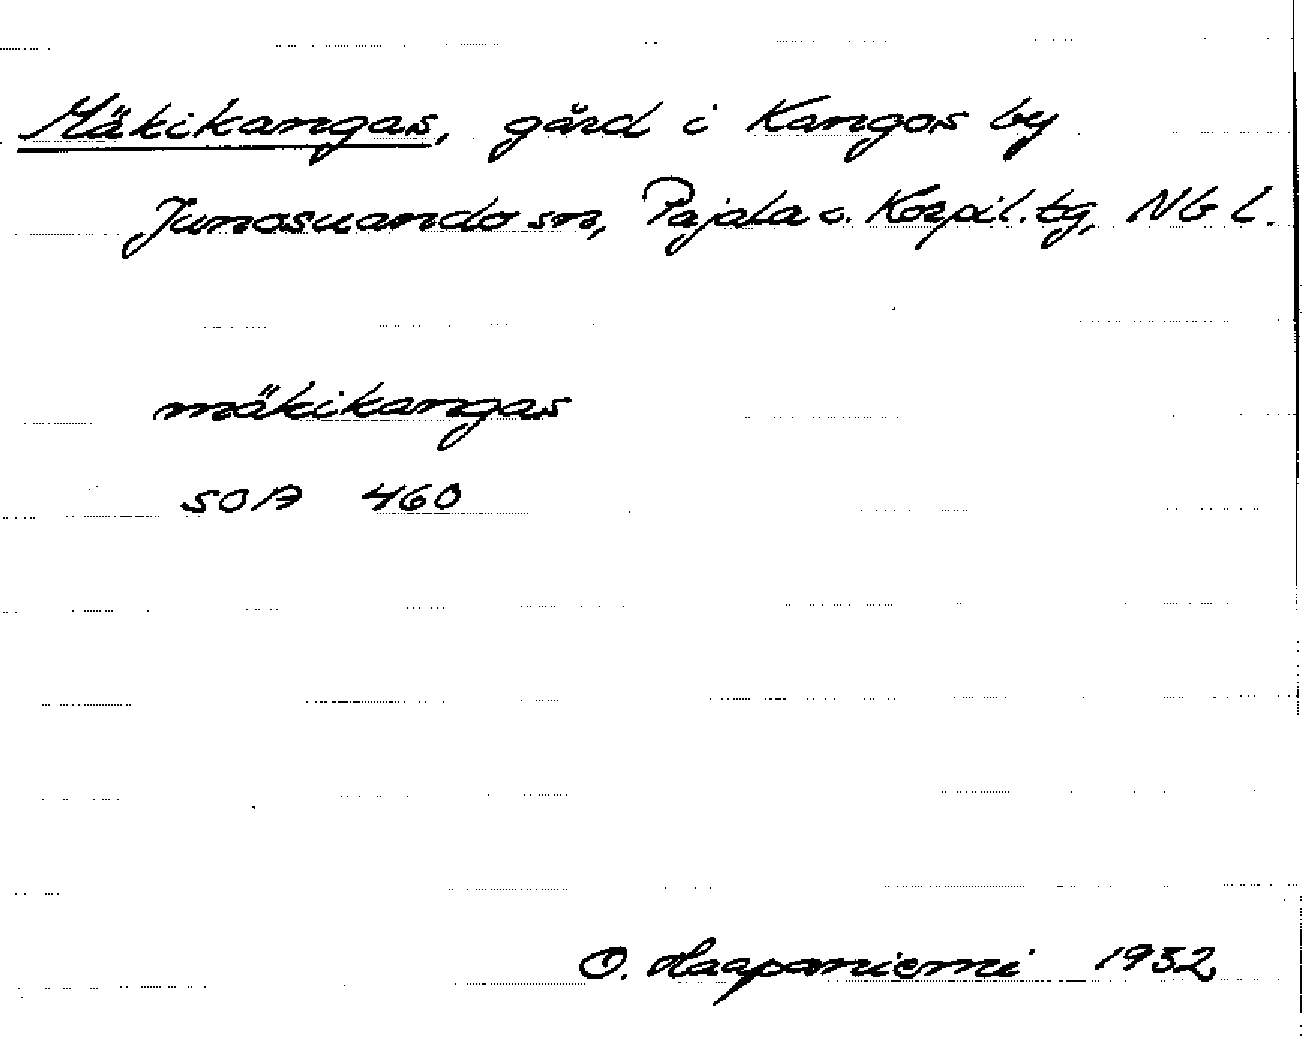 Mäkikangas, gård i Kangos by
Junosuando sn, Pajala o. Korpil. tg, NB L.
mäkikangas
SOA 460
O. Haapaniemi 1932